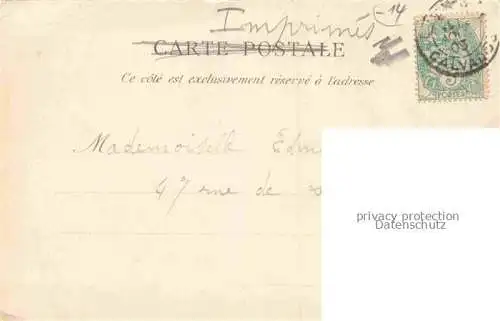 Imprimés
-14
CARTE POSTALE
Ce côté est exclusivement réservé à l'adresse
CALVADOS
Mademoiselle
47 rue de
privacy protection
Datenschutz